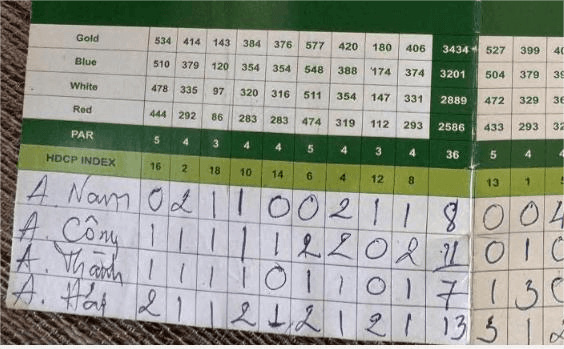 Gold 534 414 143 384 376 577 420 180 406 3434 527 399
Blue 510 379 120 354 354 548 388 174 374 3201 504 379
White 478 335 97 320 316 511 354 147 331 2889 472 329
Red 444 292 86 283 283 474 319 112 293 2586 433 293
PAR 5 4 3 4 4 5 4 3 4 36 5 4
HDCP INDEX 16 2 18 10 14 6 4 12 8 13 1
A. Nam 0 2 1 1 0 0 2 1 1 8 0 0 4
A. Công 1 1 1 1 1 2 2 0 2 11 0 1 0
A. Thành 1 1 1 1 0 1 1 0 1 7 1 3 0
A. 2 1 1 2 1 2 1 2 1 13 3 1 2